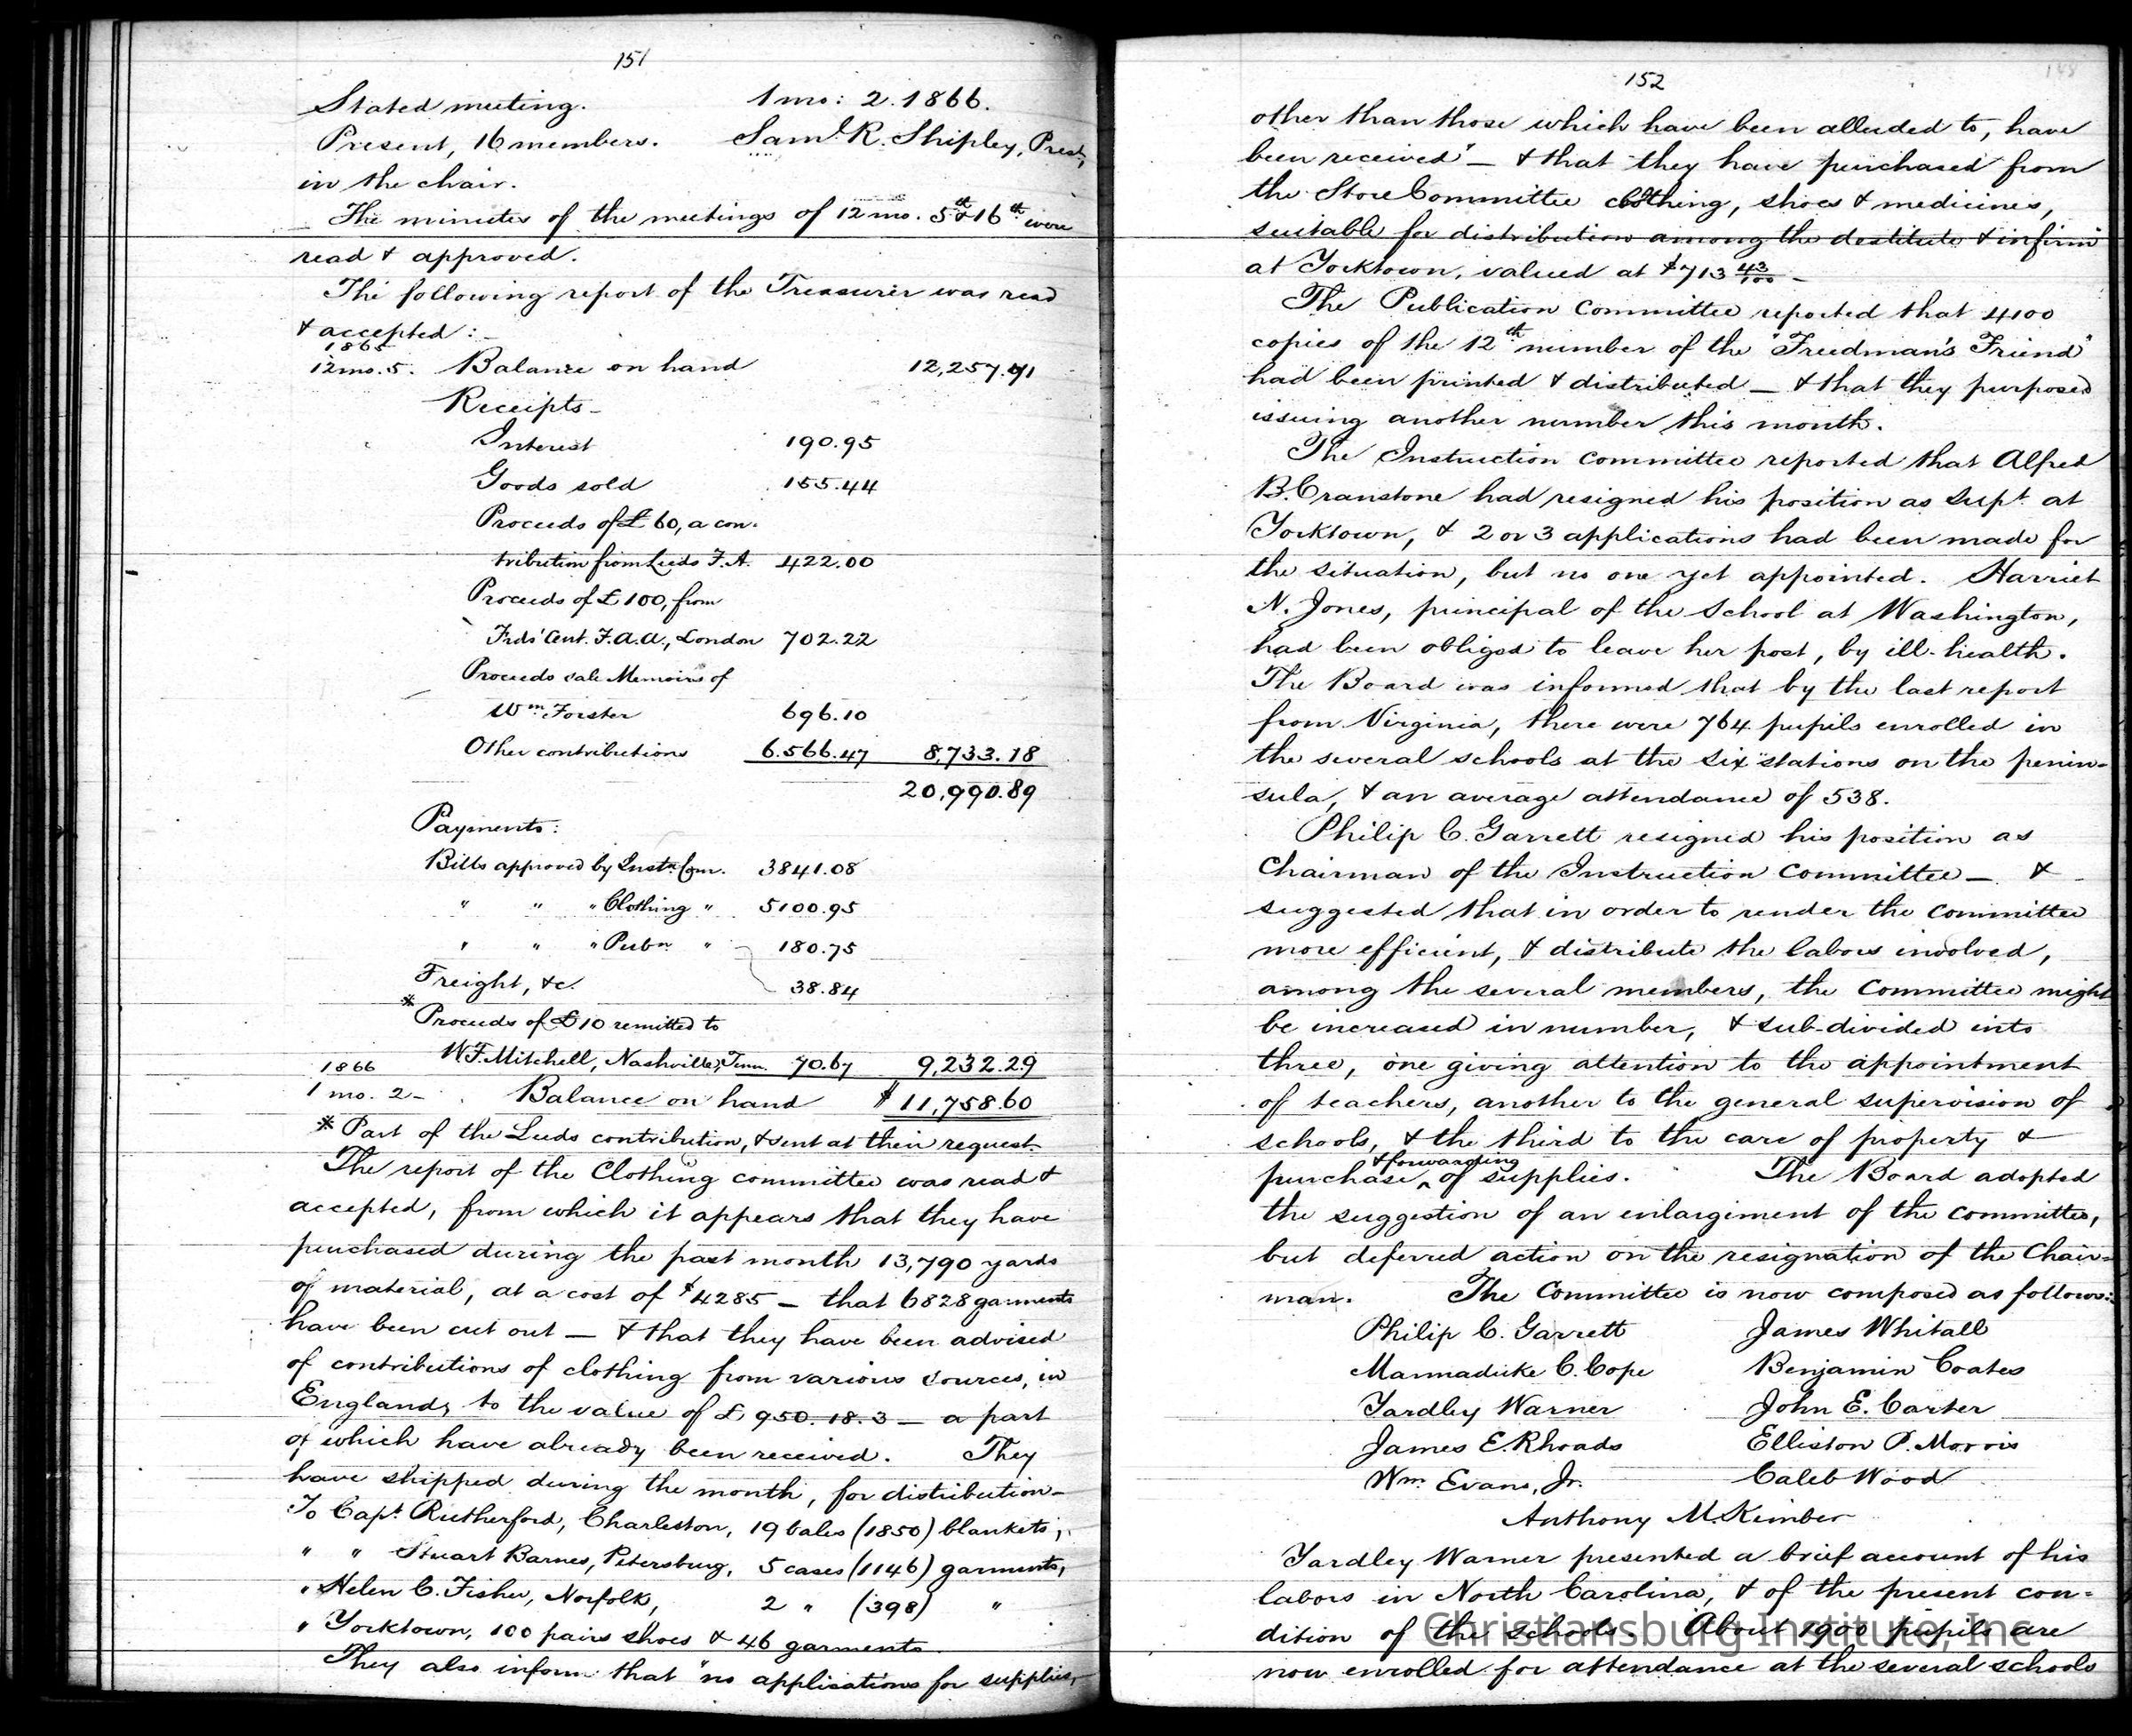 151
Stated meeting. 1 mo: 2. 1866.
Present, 16 members. Saml. R. Shipley, Prest,
in the chair.
The minutes of the meetings of 12 mo. 5th & 16th were
read & approved.
The following report of the Treasurer was read
& accepted:
1865
12 mo. 5. Balance on hand 12,257.71
Receipts
Interest 190.95
Goods sold 155.44
Proceeds of £60, a con-
tribution from Leeds F.A. 422.00
Proceeds of £100, from
Frds' Cent. F.A.A., London 702.22
Proceeds sale Memoirs of
Wm. Forster 696.10
Other contributions 6.566.47 8,733.18
20,990.89
Payments:
Bills approved by Instn. Com. 3841.08
" " " Clothing " 5100.95
" " " Pubn " 180.75
Freight, &c. 38.84
* Proceeds of £10 remitted to
W.F. Mitchell, Nashville, Tenn. 70.67 9,232.29
1866
1 mo. 2 - Balance on hand $11,758.60
* Part of the Leeds contribution, & sent at their request.
The report of the Clothing committee was read &
accepted, from which it appears that they have
purchased during the past month 13,790 yards
of material, at a cost of $4285 — that 6828 garments
have been cut out — & that they have been advised
of contributions of clothing from various sources, in
England, to the value of £950.18.3 — a part
of which have already been received. They
have shipped during the month, for distribution -
To Capt. Rutherford, Charleston, 19 bales (1850) blankets,
" " Stuart Barnes, Petersburg, 5 cases (1146) garments,
" Helen C. Fisher, Norfolk, 2 " (398) "
" Yorktown, 100 pairs shoes & 46 garments.
They also inform that "no applications for supplies,
152
other than those which have been alluded to, have
been received" — & that they have purchased from
the Store Committee clothing, shoes & medicines,
suitable for distribution among the destitute & infirm
at Yorktown, valued at $713 43/100 -
The Publication Committee reported that 4100
copies of the 12th number of the "Freedman's Friend"
had been printed & distributed — & that they purposed
issuing another number this month.
The Instruction committee reported that Alfred
B. Cranstone had resigned his position as Supt. at
Yorktown, & 2 or 3 applications had been made for
the situation, but no one yet appointed. Harriet
N. Jones, principal of the School at Washington,
had been obliged to leave her post, by ill-health.
The Board was informed that by the last report
from Virginia, there were 764 pupils enrolled in
the several schools at the six stations on the penin-
sula, & an average attendance of 538.
Philip C. Garrett resigned his position as
Chairman of the Instruction Committee — &
suggested that in order to render the committee
more efficient, & distribute the labors involved,
among the several members, the Committee might
be increased in number, & sub-divided into
three, one giving attention to the appointment
of teachers, another to the general supervision of
schools, & the third to the care of property &
purchase & forwarding of supplies. The Board adopted
the suggestion of an enlargement of the committee,
but deferred action on the resignation of the Chair-
man. The Committee is now composed as follows:
Philip C. Garrett James Whitall
Marmaduke C. Cope Benjamin Coates
Yardley Warner John E. Carter
James E. Rhoads Elliston P. Morris
Wm. Evans, Jr. Caleb Wood
Anthony M. Kimber
Yardley Warner presented a brief account of his
labors in North Carolina, & of the present con-
dition of the schools. About 1900 pupils are
now enrolled for attendance at the several schools
Christiansburg Institute, Inc